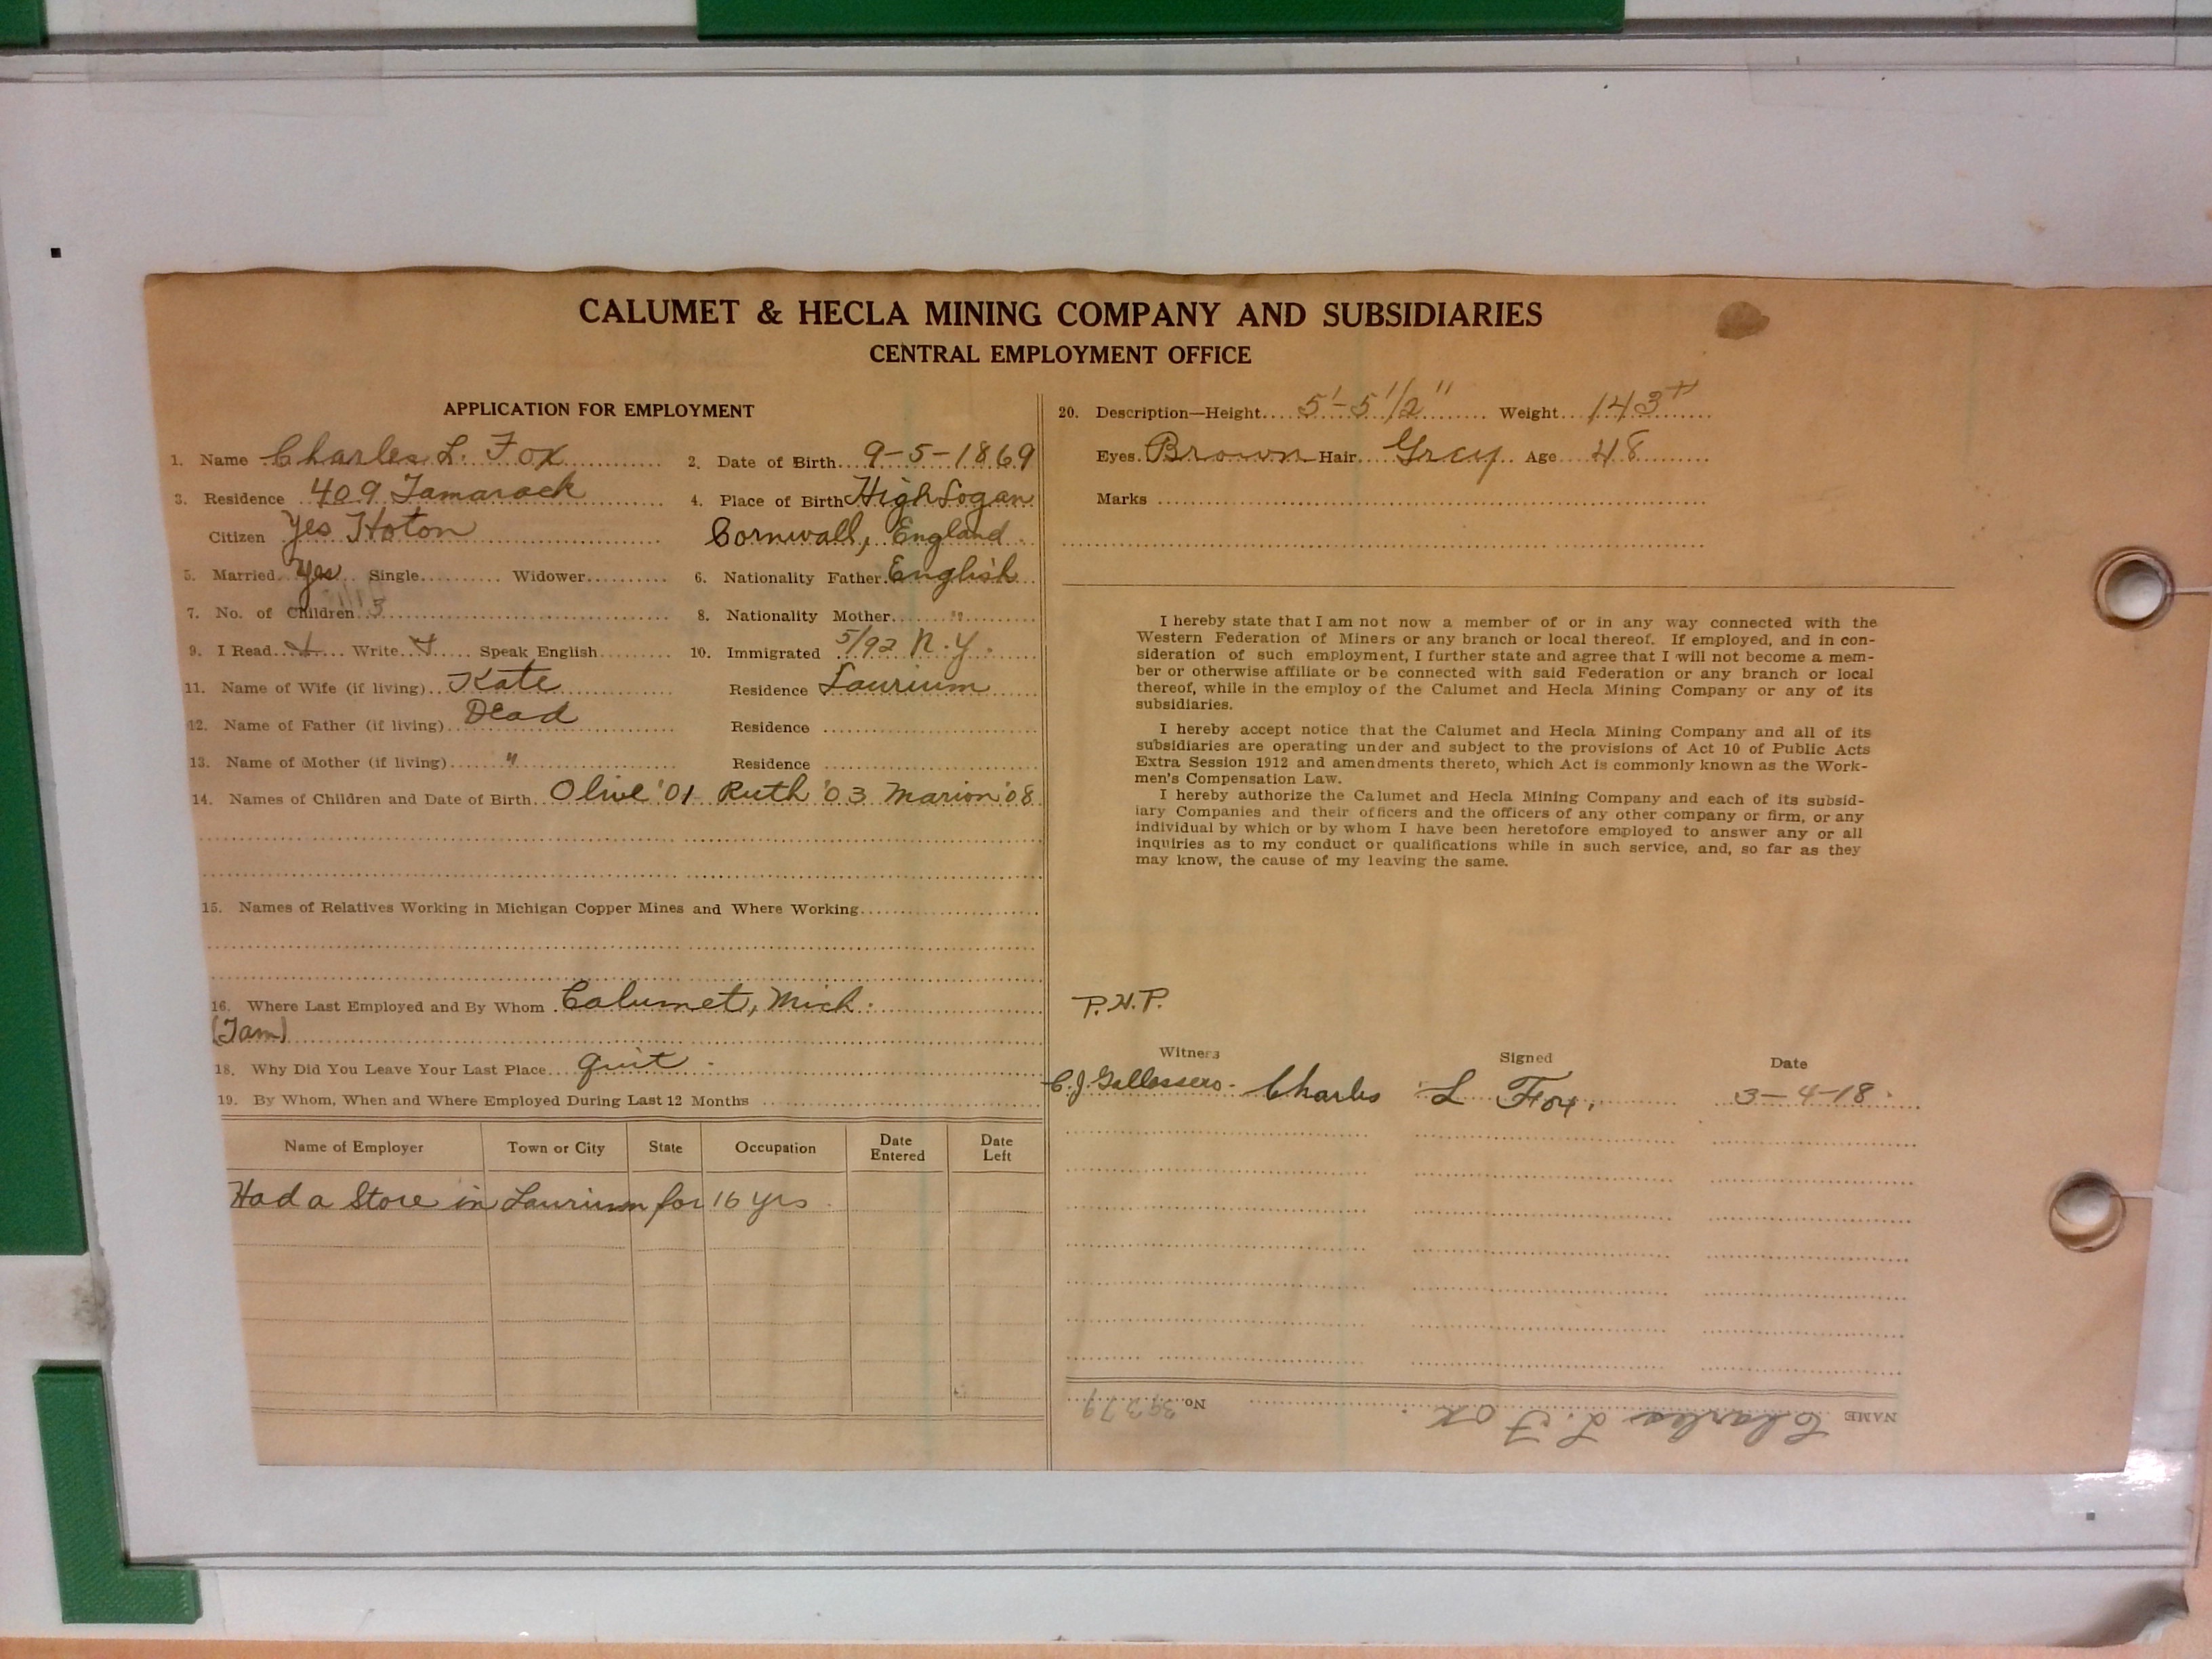 CALUMET & HECLA MINING COMPANY AND SUBSIDIARIES
CENTRAL EMPLOYMENT OFFICE
APPLICATION FOR EMPLOYMENT
1. Name Charles L. Fox 2. Date of Birth 9-5-1869
3. Residence 409 Tamarack 4. Place of Birth High Logan
Citizen Yes Hoton Cornwall, England
5. Married Yes Single Widower 6. Nationality Father English
7. No. of Children 3 8. Nationality Mother "
9. I Read Write Speak English 10. Immigrated 5/92 N.Y.
11. Name of Wife (if living) Kate Residence Laurium
12. Name of Father (if living) Dead Residence
13. Name of Mother (if living) " Residence
14. Names of Children and Date of Birth Olive '01 Ruth '03 Marion '08
15. Names of Relatives Working in Michigan Copper Mines and Where Working
16. Where Last Employed and By Whom Calumet, Mich.
(Tam)
18. Why Did You Leave Your Last Place quit
19. By Whom, When and Where Employed During Last 12 Months
Name of Employer Town or City State Occupation Date Entered Date Left
Had a Store in Laurium for 16 yrs
20. Description—Height 5'-5 1/2" Weight 143
Eyes Brown Hair Grey Age 48
Marks
I hereby state that I am not now a member of or in any way connected with the
Western Federation of Miners or any branch or local thereof. If employed, and in con-
sideration of such employment, I further state and agree that I will not become a mem-
ber or otherwise affiliate or be connected with said Federation or any branch or local
thereof, while in the employ of the Calumet and Hecla Mining Company or any of its
subsidiaries.
I hereby accept notice that the Calumet and Hecla Mining Company and all of its
subsidiaries are operating under and subject to the provisions of Act 10 of Public Acts
Extra Session 1912 and amendments thereto, which Act is commonly known as the Work-
men's Compensation Law.
I hereby authorize the Calumet and Hecla Mining Company and each of its subsid-
iary Companies and their officers and the officers of any other company or firm, or any
individual by which or by whom I have been heretofore employed to answer any or all
inquiries as to my conduct or qualifications while in such service, and, so far as they
may know, the cause of my leaving the same.
P.H.P.
Witness Signed Date
C.J. Charles L Fox. 3-4-18.
NAME Charles L. Fox. No. 39279